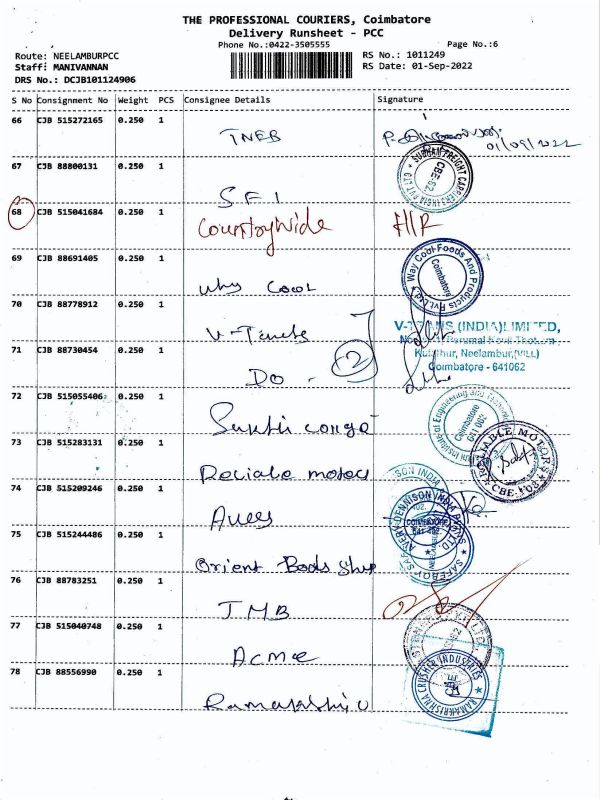 THE PROFESSIONAL COURIERS, Coimbatore
Delivery Runsheet - PCC
Phone No.:0422-3505555
Page No.:6
Route: NEELAMBURPCC
RS No.: 1011249
Staff: MANIVANNAN
RS Date: 01-Sep-2022
DRS No.: DCJB101124906
S No Consignment No Weight PCS Consignee Details Signature
66 CJB 515272165 0.250 1 TNEB
01/09/2022
67 CJB 88800131 0.250 1 SFI
SUBHAM FREIGHT CARRIERS INDIA PVT LTD CBE-62
68 CJB 515041684 0.250 1 Countrywide
69 CJB 88691405 0.250 1 Why Cool
Way Cool Foods And Products Pvt Ltd Coimbatore
70 CJB 88778912 0.250 1 V-Tanks
V-TRANS (INDIA) LIMITED,
Neelambur,(VILL)
Coimbatore - 641062
71 CJB 88730454 0.250 1 Do - 2
72 CJB 515055406 0.250 1 Sakthi
Institute of Engineering and Technology Coimbatore 641 062
73 CJB 515283131 0.250 1 Reliable motors
RELIABLE MOTORS CBE-
74 CJB 515209246 0.250 1
AVERY DENNISON INDIA PVT LTD COIMBATORE
75 CJB 515244486 0.250 1 Orient Body Shop
76 CJB 88783251 0.250 1 TMB
77 CJB 515040748 0.250 1 Acme
78 CJB 88556990 0.250 1
RAMAKRISHNA CRUSHER INDUSTRIES